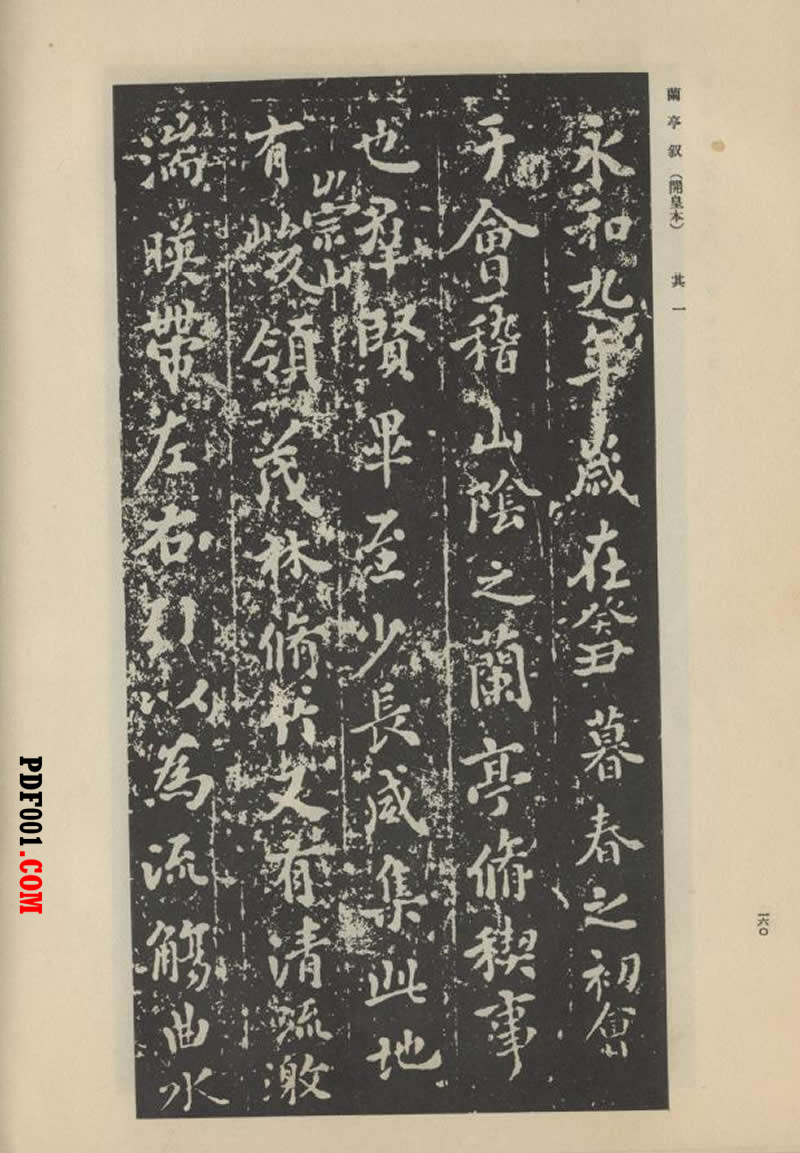 蘭亭叙（開皇本）　其一
永和九年歲在癸丑暮春之初會
于會稽山陰之蘭亭脩稧事
也羣賢畢至少長咸集此地
有崇山峻領茂林脩竹又有清流激
湍暎帶左右引以為流觴曲水
一六〇
PDF001.COM